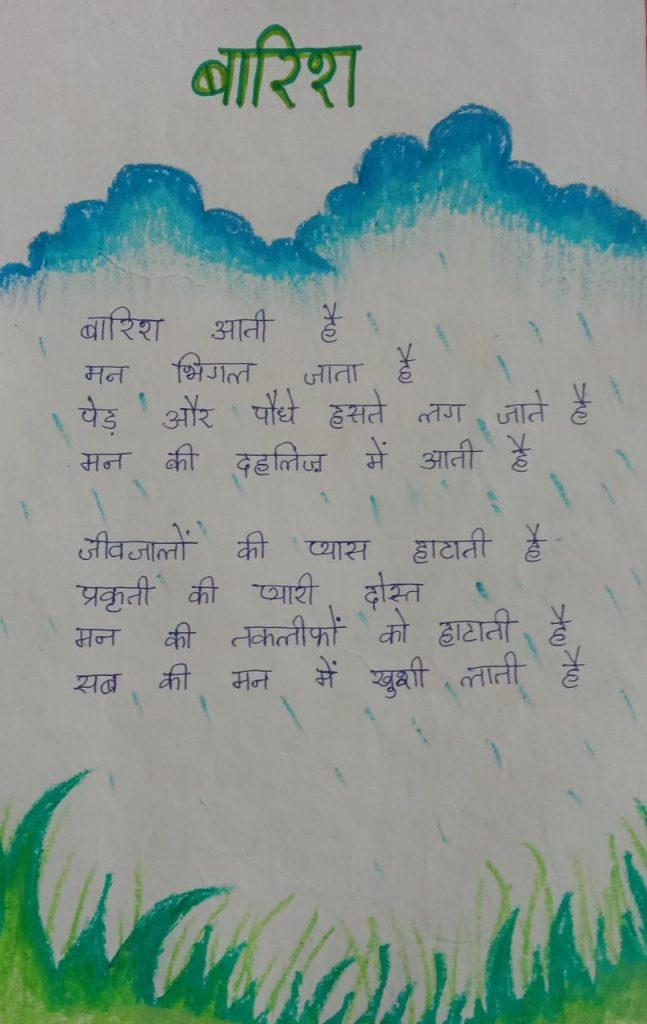 बारिश
बारिश आती है
मन भिगल जाता है
पेड़ और पौधे हसते लग जाते है
मन की दहलिज़ में आती है
जीवजालों की प्यास हाटाती है
प्रकृती की प्यारी दोस्त
मन की तकलीफों को हाटाती है
सब की मन में खुशी लाती है